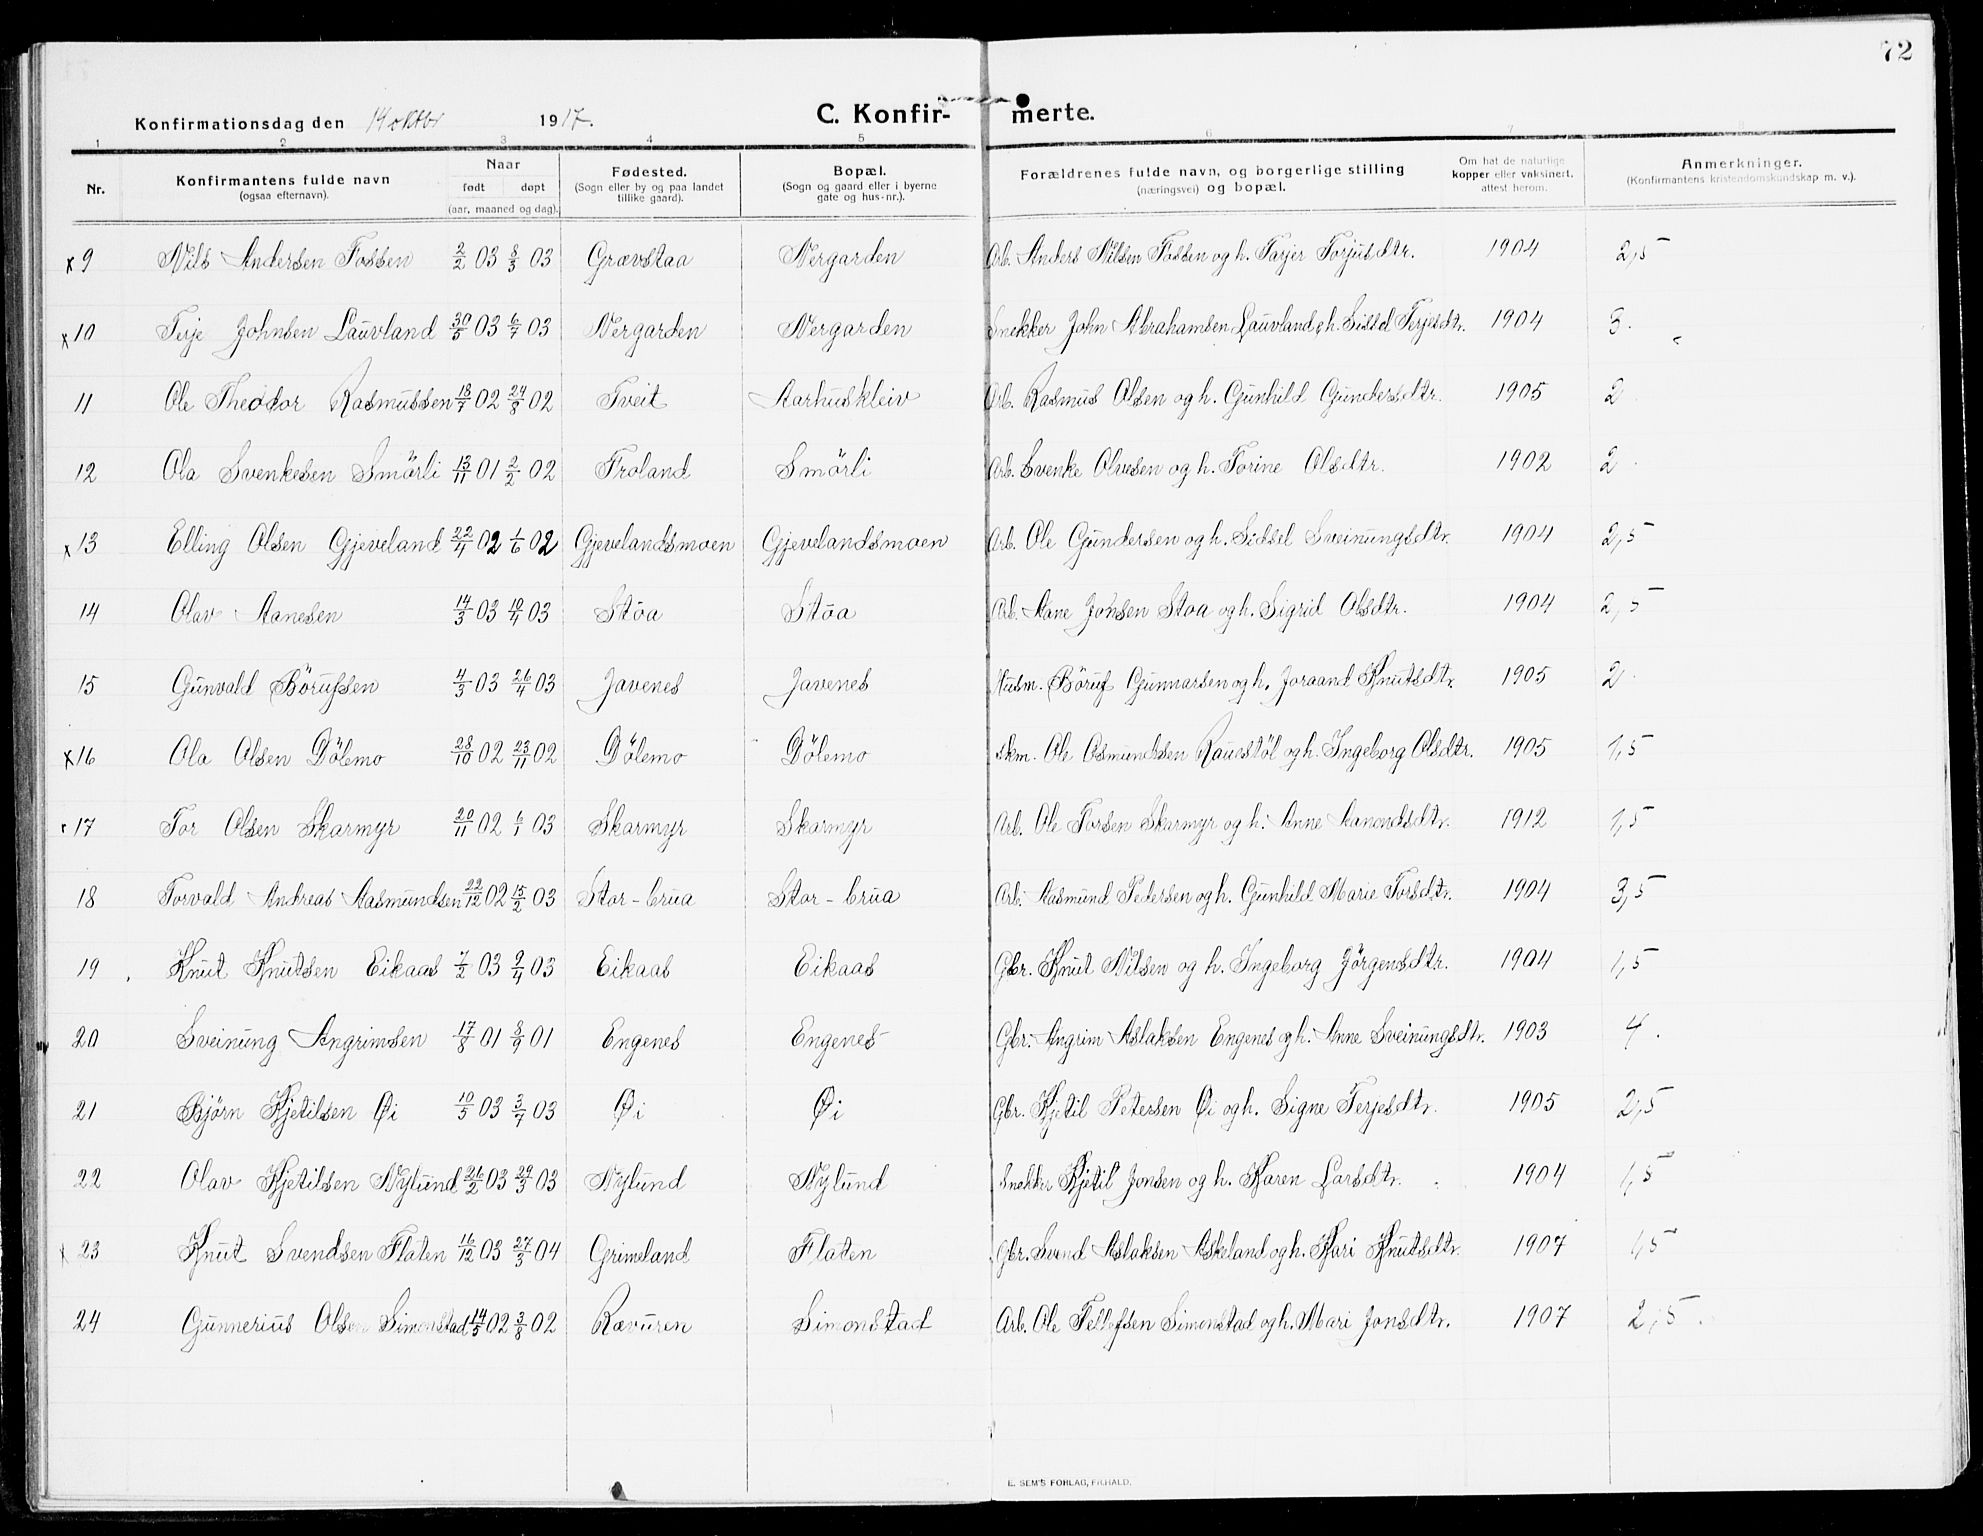 72
Konfirmationsdag den 14 oktbr 1917. C. Konfir- merte.
1 2 3 4 5 6 7 8
Nr. Konfirmantens fulde navn (ogsaa efternavn). Naar født døpt (aar, maaned og dag). Fødested. (Sogn eller by og paa landet tillike gaard). Bopæl. (Sogn og gaard eller i byerne gate og hus-nr.). Forældrenes fulde navn, og borgerlige stilling (næringsvei) og bopæl. Om hat de naturlige kopper eller vaksinert, attest herom. Anmerkninger. (Konfirmantens kristendomskundskap m. v.).
x 9 Nils Andersen Fossen 2/2 03 8/3 03 Grævstaa Nergarden Arb. Anders Nilsen Fossen og h. Tarjer Torjusdtr. 1904 2,5
x 10 Terje Johnsen Lauvland 30/5 03 6/7 03 Nergarden Nergarden Snekker John Abrahamsen Lauvland & h. Sissel Terjesdtr. 1904 3.
11 Ole Theodor Rasmussen 18/7 02 24/8 02 Tveit Aarhuskleiv Arb. Rasmus Olsen og h. Gunhild Gundersdtr. 1905 2
12 Ola Svenkesen Smörli 13/11 01 2/2 02 Froland Smörli Arb. Svenke Olvesen og h. Torine Olsdtr. 1902 2
x 13 Elling Olsen Gjeveland 22/4 02 1/6 02 Gjevelandsmoen Gjevelandsmoen Arb. Ole Gundersen og h. Sidsel Sveinungsdtr. 1904 2,5
14 Olav Aanesen 14/3 03 19/4 03 Stöa Stöa Arb. Aane Jonsen Stoa og h. Sigrid Olsdtr. 1904 2,5
15 Gunvald Börufsen 4/3 03 26/4 03 Javenes Javenes Husm. Böruf Gunnarsen og h. Joraand Knutsdtr. 1905 2
x 16 Ola Olsen Dölemo 28/10 02 23/11 02 Dölemo Dölemo Skm. Ole Osmundsen Raustöl og h. Ingeborg Olsdtr. 1905 1,5
17 Tor Olsen Skarmyr 20/11 02 6/1 03 Skarmyr Skarmyr Arb. Ole Torsen Skarmyr og h. Anne Aanondsdtr. 1912 1,5
18 Torvald Andreas Aasmundsen 22/12 02 15/2 03 Stor-brua Stor-brua Arb. Aasmund Pedersen og h. Gunhild Marie Torsdtr. 1904 3,5
19 Knut Knutsen Eikaas 7/2 03 9/4 03 Eikaas Eikaas Gbr. Knut Nilsen og h. Ingeborg Jörgensdtr. 1904 1,5
20 Sveinung Angrimsen 17/8 01 8/9 01 Engenes Engenes Gbr. Angrim Aslaksen Engenes og h. Anne Sveinungsdtr. 1903 4.
21 Bjørn Kjetilsen Øi 10/5 03 3/7 03 Øi Øi Gbr. Kjetil Petersen Øi og h. Signe Terjesdtr. 1905 2,5
22 Olav Kjetilsen Nylund 26/2 03 29/3 03 Nylund Nylund Snekker Kjetil Jonsen og h. Karen Larsdtr. 1904 1,5
x 23 Knut Svendsen Flaten 16/12 03 27/3 04 Grimeland Flaten Gbr. Svend Aslaksen Askeland og h. Kari Knutsdtr. 1907 1,5
24 Gunnerius Olsen Simonstad 14/5 02 3/8 02 Rævuren Simonstad Arb. Ole Tellefsen Simonstad og h. Mari Jonsdtr. 1907 2,5.
E. SEM'S FORLAG, FR.HALD.